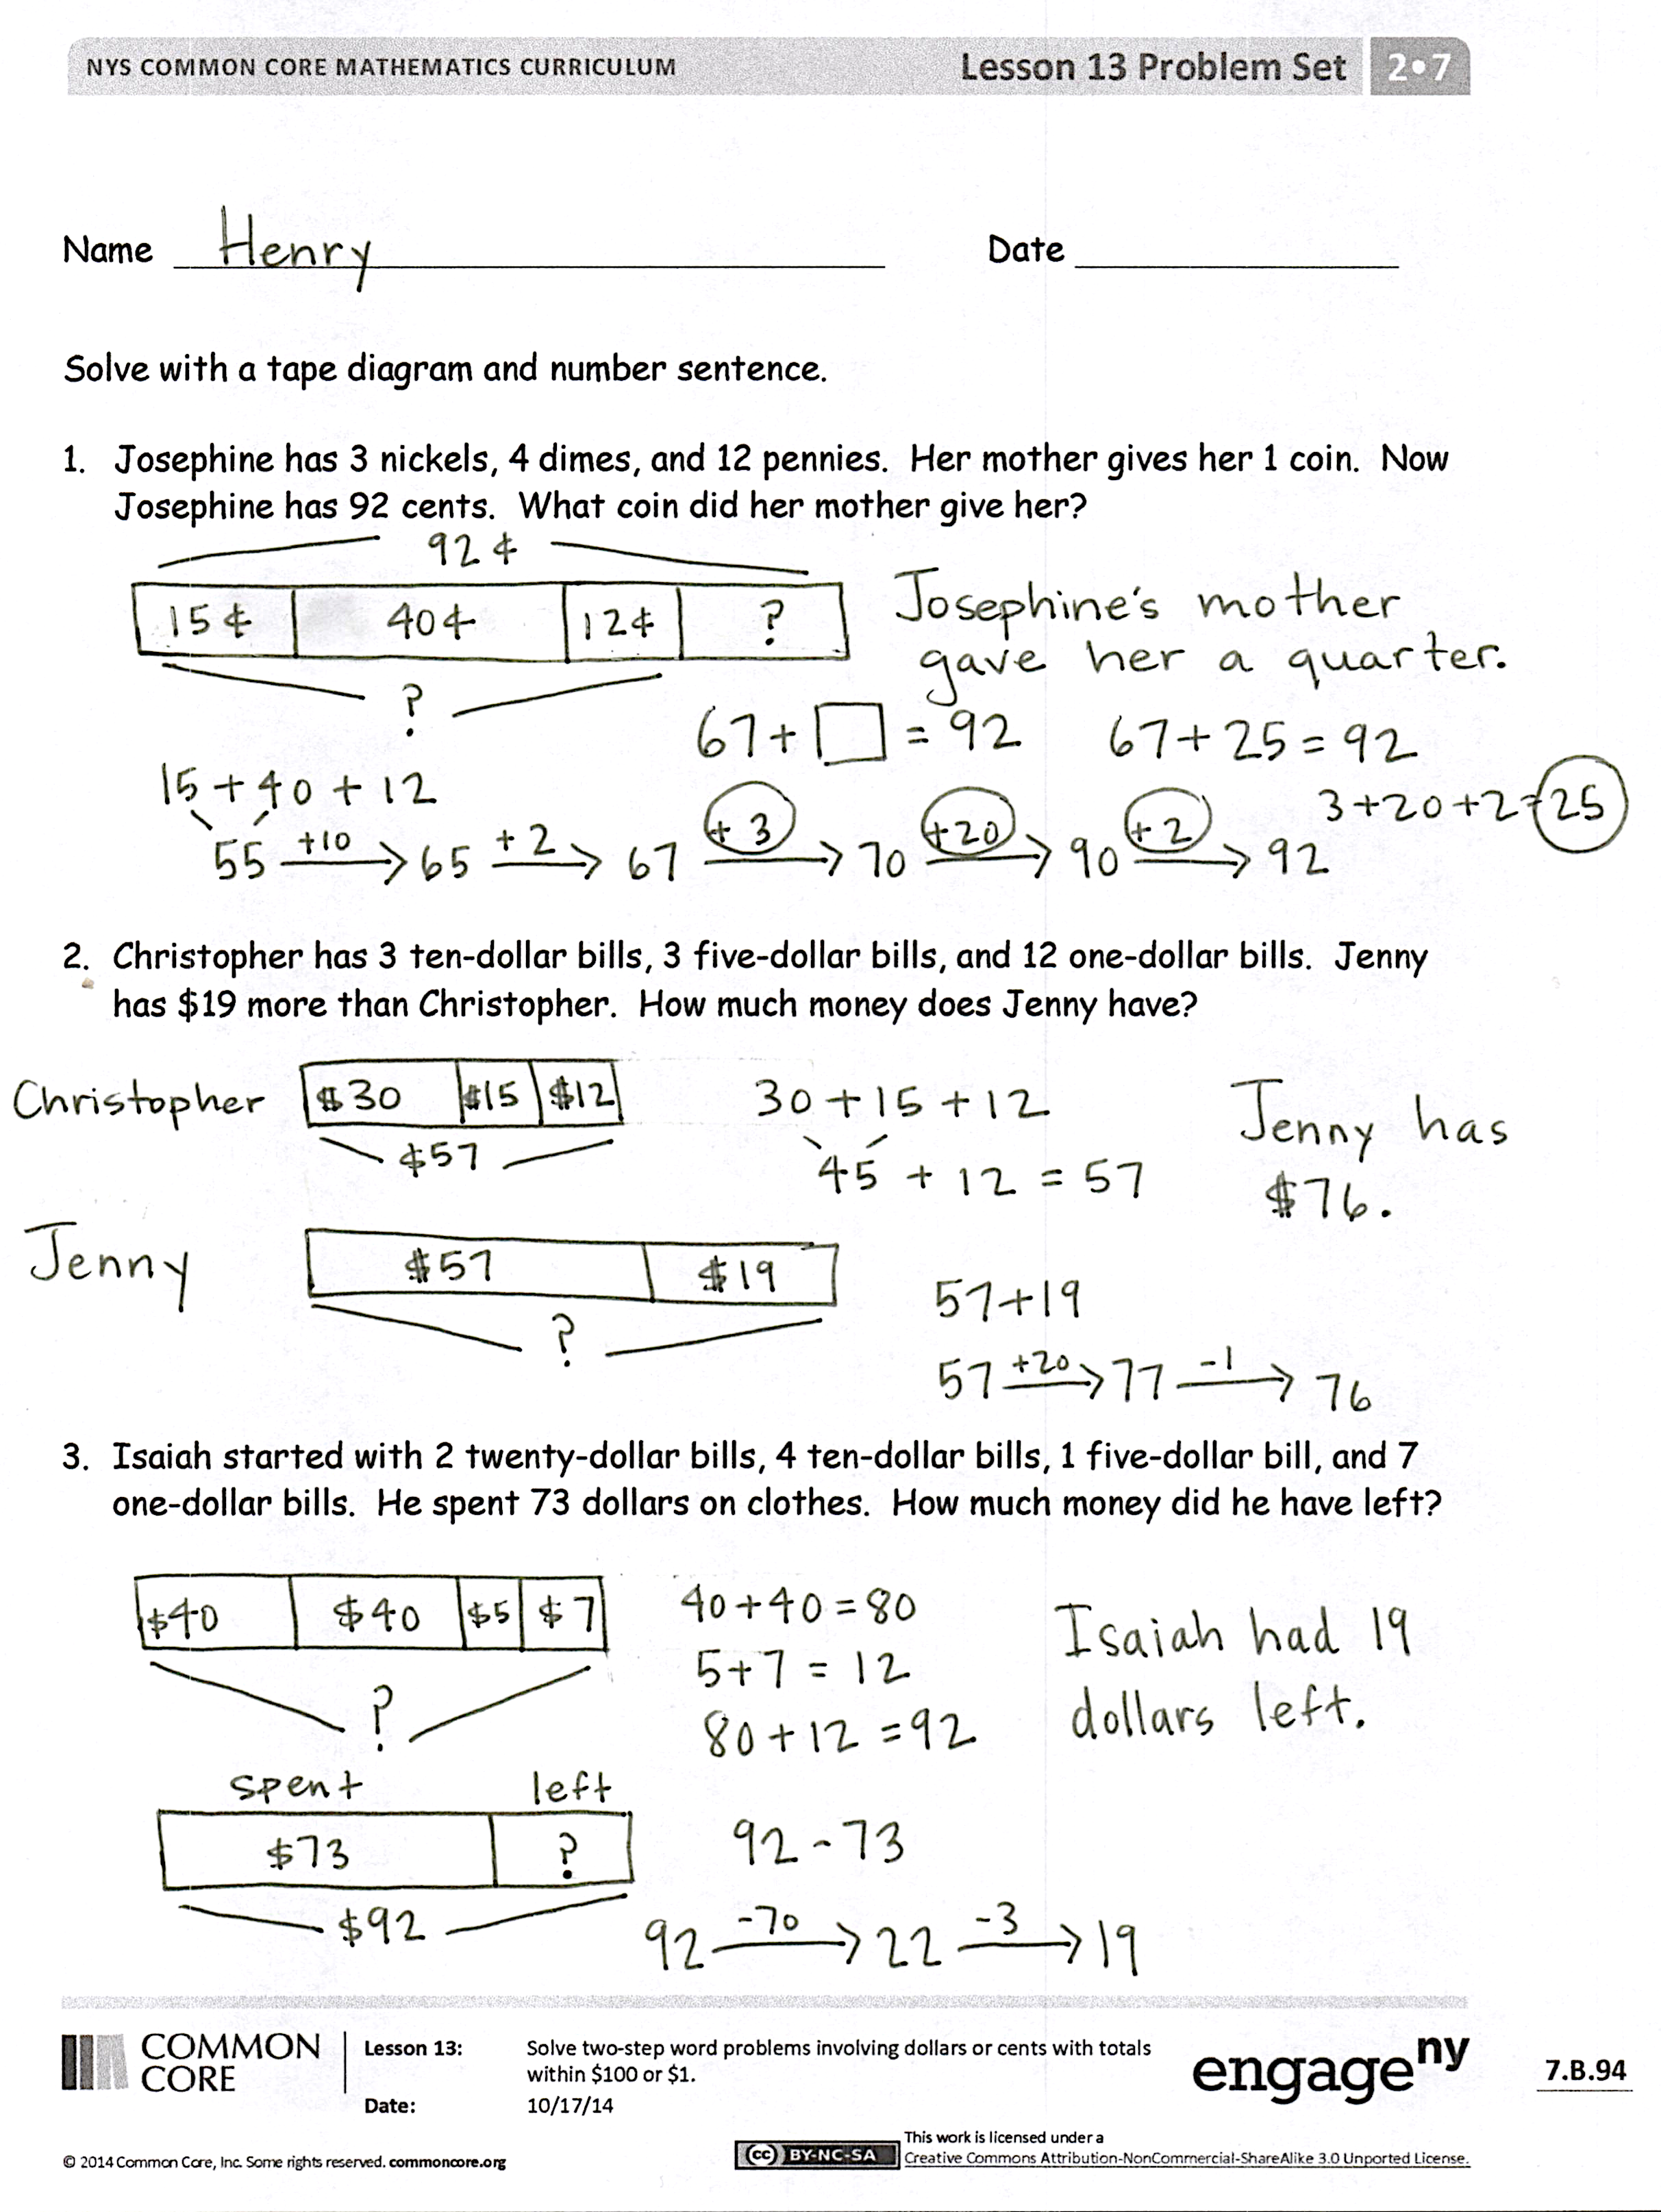 NYS COMMON CORE MATHEMATICS CURRICULUM Lesson 13 Problem Set 2•7
Name Henry Date
Solve with a tape diagram and number sentence.
1. Josephine has 3 nickels, 4 dimes, and 12 pennies. Her mother gives her 1 coin. Now
Josephine has 92 cents. What coin did her mother give her?
92¢
15¢ 40¢ 12¢ ?
?
Josephine's mother
gave her a quarter.
67+□=92 67+25=92
15+40+12
3+20+2=25
55 +10→ 65 +2→ 67 +3→ 70 +20→ 90 +2→ 92
2. Christopher has 3 ten-dollar bills, 3 five-dollar bills, and 12 one-dollar bills. Jenny
has $19 more than Christopher. How much money does Jenny have?
Christopher $30 $15 $12
$57
30+15+12
45+12=57
Jenny has
$76.
Jenny $57 $19
?
57+19
57 +20→ 77 -1→ 76
3. Isaiah started with 2 twenty-dollar bills, 4 ten-dollar bills, 1 five-dollar bill, and 7
one-dollar bills. He spent 73 dollars on clothes. How much money did he have left?
$40 $40 $5 $7
?
40+40=80
5+7=12
80+12=92
Isaiah had 19
dollars left.
spent left
$73 ?
$92
92-73
92 -70→ 22 -3→ 19
COMMON
CORE
Lesson 13: Solve two-step word problems involving dollars or cents with totals
within $100 or $1.
Date: 10/17/14
engageny
7.B.94
© 2014 Common Core, Inc. Some rights reserved. commoncore.org
cc BY-NC-SA
This work is licensed under a
Creative Commons Attribution-NonCommercial-ShareAlike 3.0 Unported License.